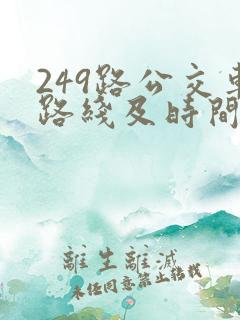 249路公交車
路綫及時間
離生離滅
未经同意禁止转载